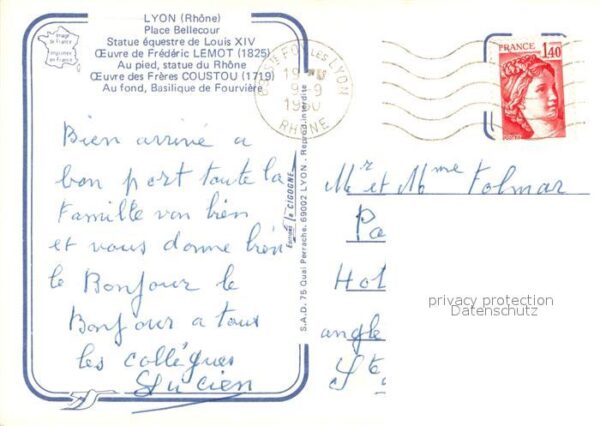 LYON (Rhône)
Place Bellecour
Statue équestre de Louis XIV
Œuvre de Frédéric LEMOT (1825)
Au pied, statue du Rhône
Œuvre des Frères COUSTOU (1719)
Au fond, Basilique de Fourvière
Image de France
imprimée en France
Bien arrivé a
bon port toute la
Famille von bien
et vous donne bien
le Bonjour le
Bonjour a tous
les collégues
Lucien
Editions la CIGOGNE
S.A.D. 75 Quai Perrache, 69002 LYON - Reprod. interdite
Ste FOY LES LYON
19 H
9-9
1980
RHONE
FRANCE
1,40
POSTES
Mr et Mme Folmar
Pa
Hot
angle
Ste
privacy protection
Datenschutz